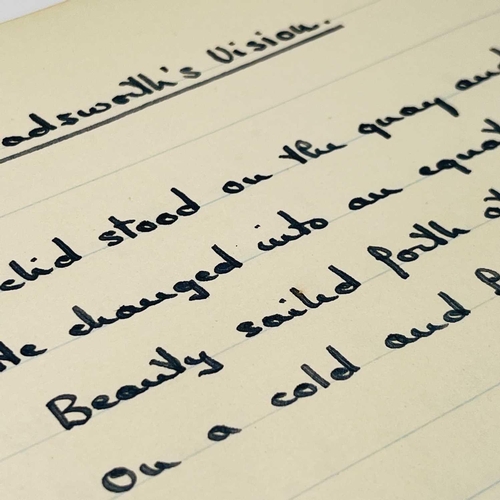 adsworth's Vision.
clid stood on the quay and
He changed into an equat
Beauty sailed forth
On a cold and